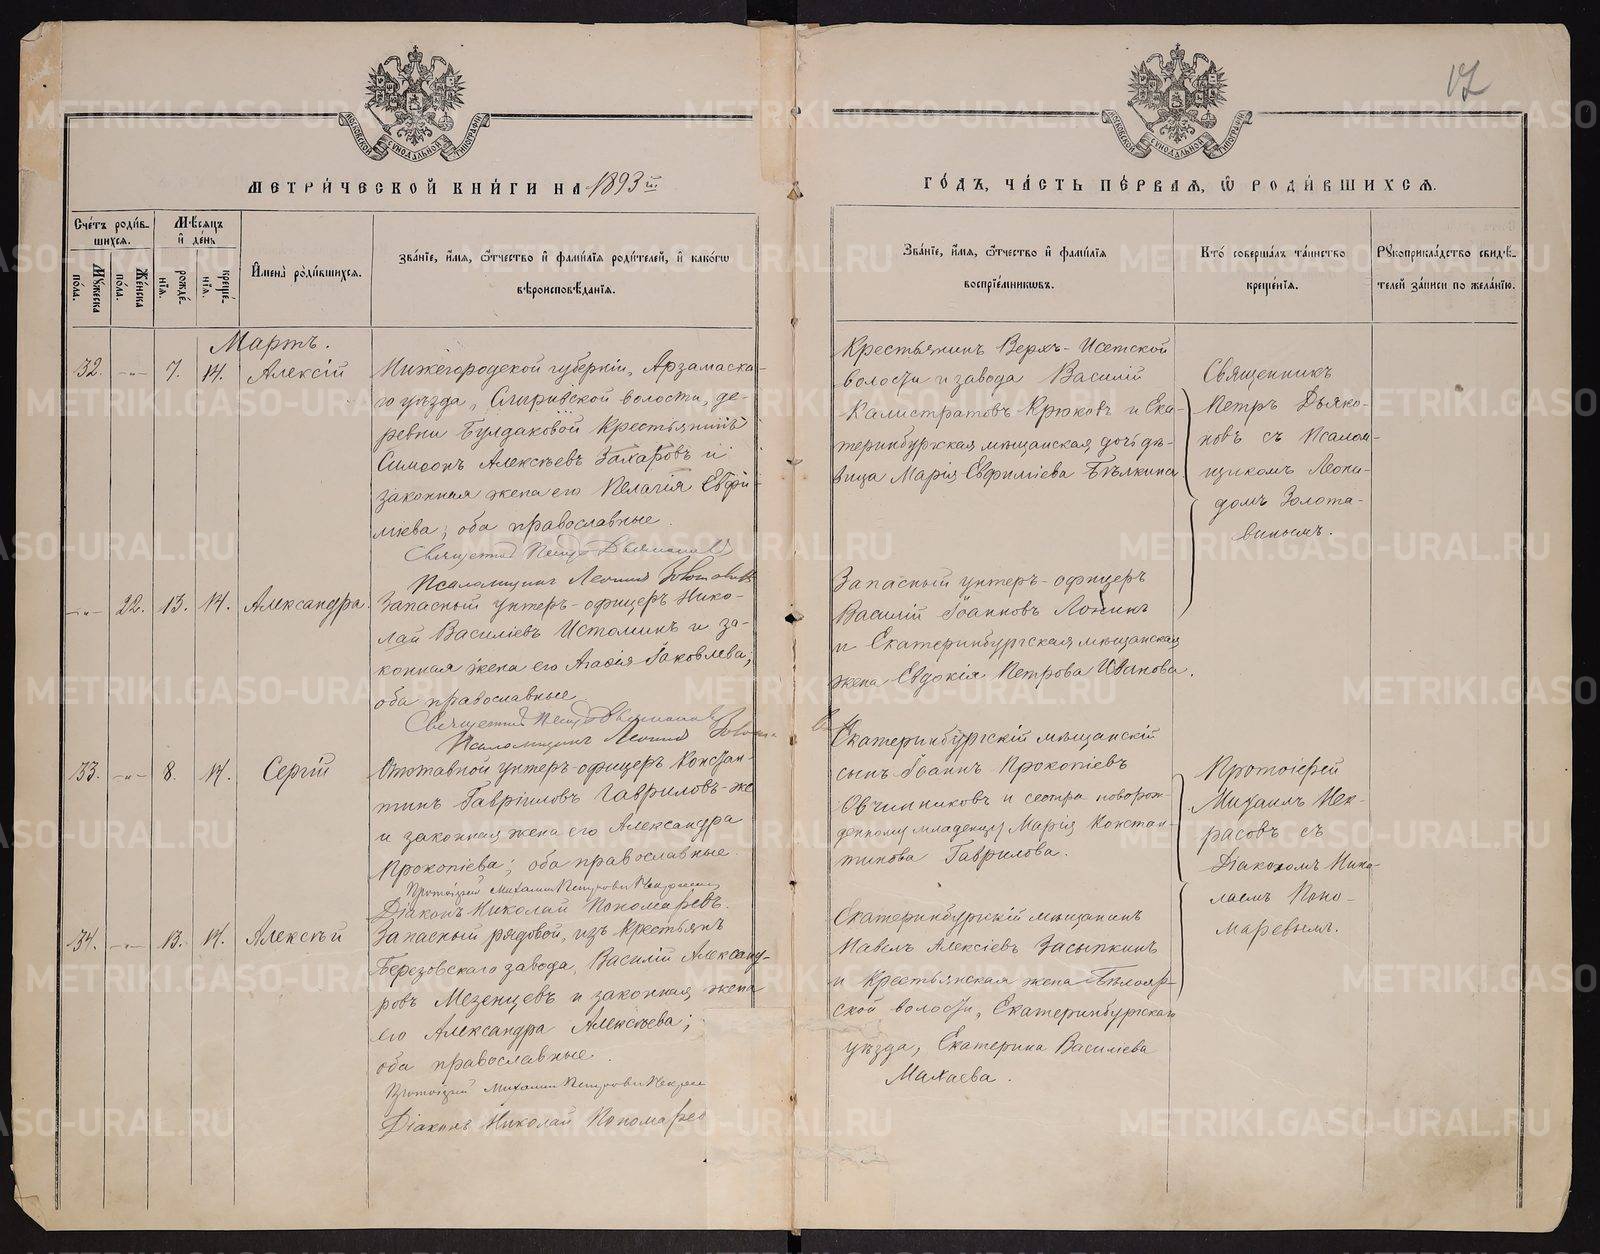 17
МОСКОВСКОЙ СѴНОДАЛЬНОЙ ТИПОГРАФІИ
МОСКОВСКОЙ СѴНОДАЛЬНОЙ ТИПОГРАФІИ
МЕТРИ́ЧЕСКОЙ КНИ́ГИ НА 1893 й
ГО́ДЪ, ЧА́СТЬ ПЕ́РВАЯ, Ѿ РОДИ́ВШИХСЯ.
Сче́тъ роди́в-
шихся.
Мѣ́сяцъ
и҆ де́нь
Мꙋ́жеска
по́ла.
Же́нска
по́ла.
рожде́-
нія.
креще́-
нія.
И҆мена̀ роди́вшихся.
Зва́ніе, и҆́мя, ѻ҆́тчество и҆ фами́лія роди́телей, и҆ како́гѡ
вѣроисповѣ́данія.
Зва́ніе, и҆́мя, ѻ҆́тчество и҆ фами́лія
воспріе́мникѡвъ.
Кто̀ соверша́лъ та́инство
креще́нія.
Рꙋкоприкла́дство свидѣ́-
телей за́писи по жела́нію.
Мартъ.
32. -„- 7. 14. Алексій
Нижегородской губерніи, Арзамаска-
го уѣзда, волости, де-
ревни Булдаковой Крестьянинъ
Симеонъ Алексѣевъ Захаровъ и
законная жена его Пелагія Евфи-
міева; оба православные.
Священникъ Петръ Дьяконовъ
Псаломщикъ Леонидъ Золотавинъ
Крестьянинъ Верхъ-Исетской
волости и завода Василій
Калистратовъ Крюковъ и Ека-
теринбуржская мѣщанская дочь дѣ-
вица Марія Евфиміева Бѣлкина
Священникъ
Петръ Дьяко-
новъ съ Псалом-
щикомъ Леони-
домъ Золота-
винымъ.
-„- 22. 13. 14. Александра.
Запасный унтеръ-офицеръ Нико-
лай Василіевъ Истоминъ и за-
конная жена его Агафія Іаковлева;
оба православные
Священникъ Петръ Дьяконовъ
Псаломщикъ Леонидъ
Запасный унтеръ-офицеръ
Василій Іоанновъ
и Екатеринбургская мѣщанская
жена Евдокія Петрова Иванова.
33. -„- 8. 14. Сергій
Отставной унтеръ-офицеръ Констан-
тинъ Гавріиловъ Гавриловъ-же
и законная жена его Александра
Прокопіева; оба православные.
Протоіерей Михаилъ Некрасовъ
Діаконъ Николай Пономаревъ.
Екатеринбургскій мѣщанскій
сынъ Іоаннъ Прокопіевъ
Овчинниковъ и сестра новорож-
денному младенцу Марія Констан-
тинова Гаврилова.
Протоіерей
Михаилъ Нек-
расовъ съ
Діакономъ Нико-
лаемъ Поно-
маревымъ.
34. -„- 13. 14. Алексѣй
Запасный рядовой, изъ крестьянъ
Березовскаго завода, Василій Александ-
ровъ Мезенцевъ и законная жена
его Александра Алексѣева;
оба православные.
Протоіерей Михаилъ
Діаконъ Николай Пономарев
Екатеринбургскій мѣщанинъ
Павелъ Алексіевъ Засыпкинъ
и крестьянская жена Бѣлояр-
ской волости, Екатеринбургскаго
уѣзда, Екатерина Василіева
Махаева.
METRIKI.GASO-URAL.RU